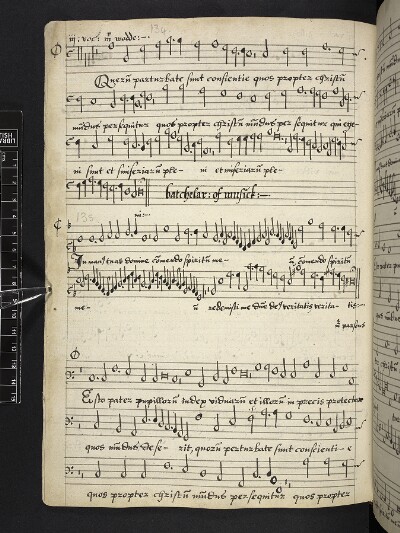 134
iij: voc: mr wodde:~
Querū parturbate sunt consientie quos propter christū
mūdus persequitur quos propter christū mūdus persequitur qui ege-
ni sunt et miseriarū ple- ni et miseriarū ple-
batchelar: of musick:~
135
In manꝰ tuas domine cōmendo spiritū me- ū cōmendo spiritū
me- ū redemisti me dn̄e deꝰ veritatis verita- tis:~
mr parsons
Esto pater pupillorū iudex viduarū et illorū in precis protector
quos mūdus dese- rit, quorū perturbate sunt conscienti- e
quos propter christū mūdus persequitur quos propter